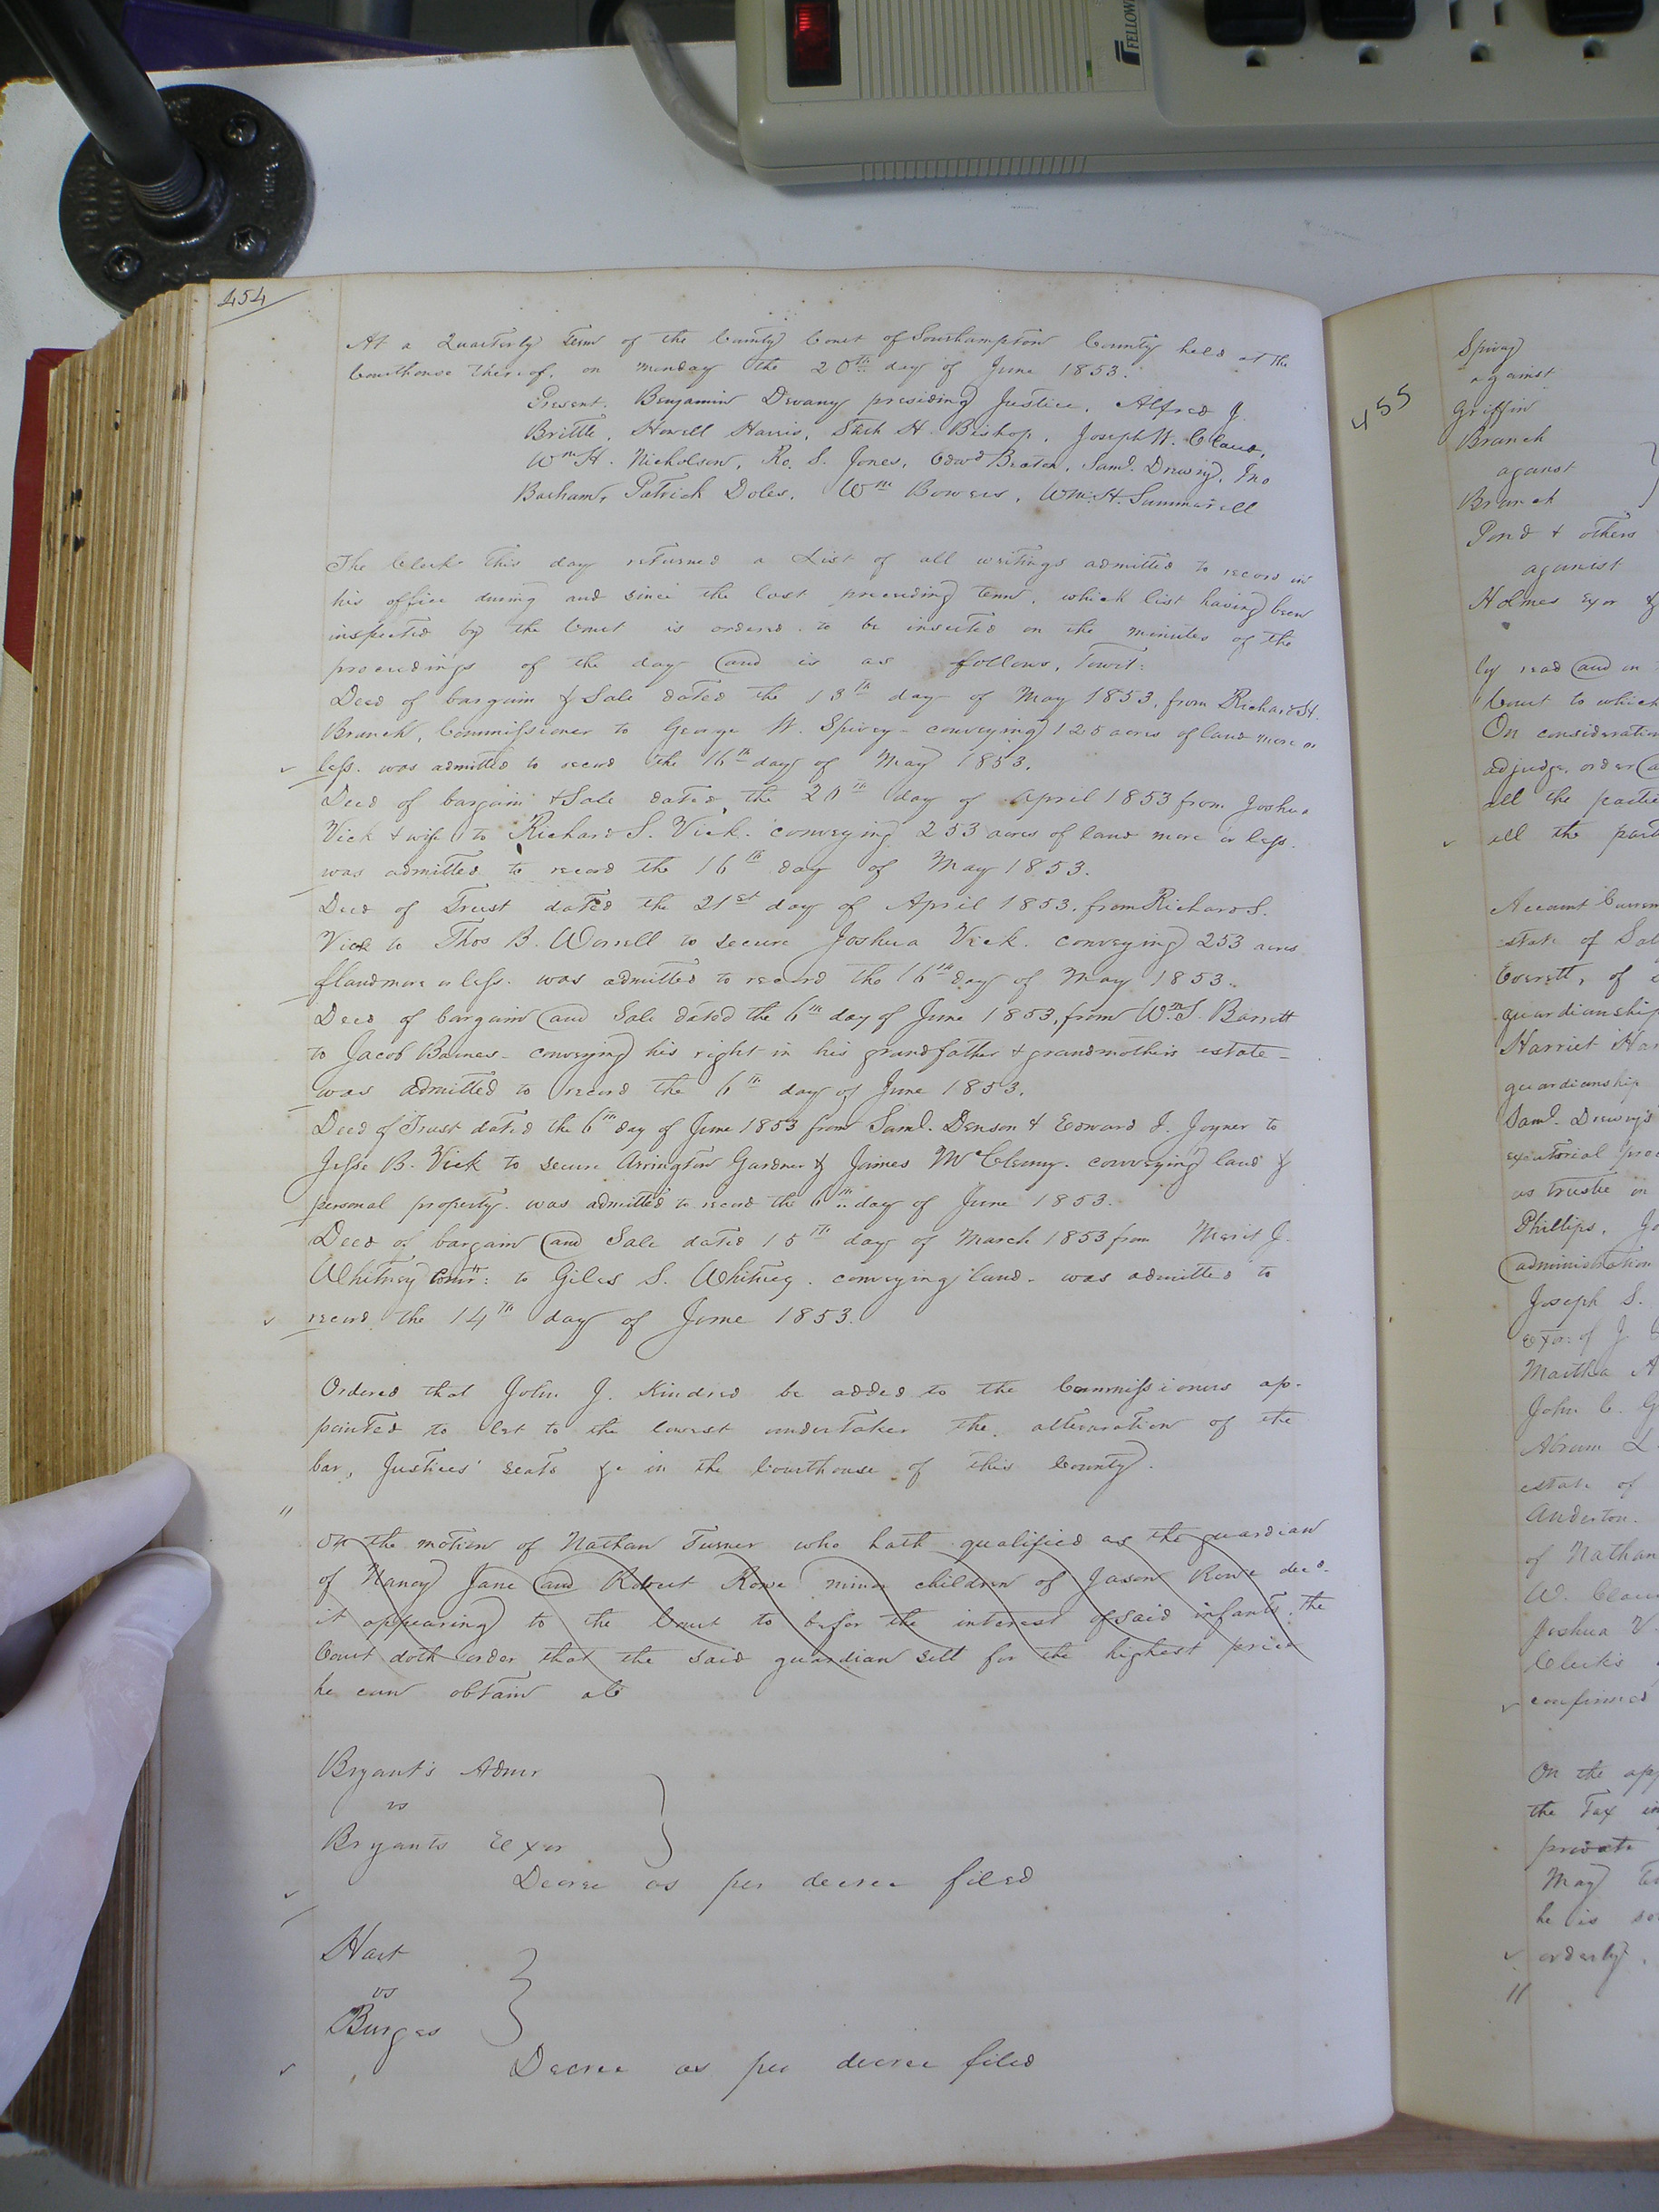 FELLOW
454
At a Quarterly Term of the County Court of Southampton County held at the
Courthouse thereof, on Monday the 20th day of June 1853.
Present. Benjamin Devany presiding Justice, Alfred J.
Brittle, Howell Harris, Stith H. Bishop, Joseph W. Claud,
Wm H. Nicholson, Ro. S. Jones, Edwd Beaton, Saml. Drewry, Jno
Barham, Patrick Doles, Wm Bowers, Wm. H. Summerell
The Clerk this day returned a List of all writings admitted to record in
his office during and since the last preceeding term, which list having been
inspected by the Court is ordered to be inserted on the minutes of the
proceedings of the day and is as follows, Towit:
Deed of bargain & Sale dated the 13th day of May 1853, from Richard H.
Branch, Commissioner to George W. Spivey - conveying 125 acres of land more or
less. was admitted to record the 16th day of May 1853.
Deed of bargain & Sale dated the 20th day of April 1853 from Joshua
Vick & wife to Richard S. Vick. conveying 253 acres of land more or less.
was admitted to record the 16th day of May 1853.
Deed of Trust dated the 21st day of April 1853. from Richard S.
Vick to Thos B. Worrell to secure Joshua Vick. conveying 253 acres
of land more or less. was admitted to record the 16th day of May 1853.
Deed of bargain and Sale dated the 6th day of June 1853, from Wm. S. Barrett
to Jacob Barnes - conveying his right in his grandfather & grandmothers estate -
was admitted to record the 6th day of June 1853.
Deed of Trust dated the 6th day of June 1853 from Saml. Denson & Edward J. Joyner to
Jesse B. Vick to secure Arrington Gardner & James McClemy. conveying land &
personal property. was admitted to record the 6th day of June 1853.
Deed of bargain and Sale dated 15th day of March 1853 from Merit J.
Whitney Comr: to Giles S. Whitney. conveying land - was admitted to
record the 14th day of June 1853.
Ordered that John J. Kindred be added to the Commissioners ap-
pointed to let to the lowest undertaker the alteration of the
bar, Justices' seats &c in the Courthouse of this County.
"
On the motion of Nathan Turner who hath qualified as the guardian
of Nancy Jane and Robert Rowe minor children of Jason Rowe decd.
it appearing to the Court to be for the interest of said infants, the
Court doth order that the said guardian sell for the highest price
he can obtain
Bryant's Admr
vs
Bryants Exor
Decree as per decree filed
Hart
vs
Burges
Decree as per decree filed
455
Spivey
against
Griffin
Branch
against
Branch
Pond & others
against
Holmes Exor &
ly read and on
Court to which
On consideration
adjudge, order
all the partie
all the part
Account Curren
estate of Sal
Everett, of
guardianship
Harriet Har
guardianship
Saml. Drewry's
executorial proc
as trustee on
Phillips, Jo
administration
Joseph S.
Exor: of J
Martha A
John C. G
Abram L
estate of
Anderton.
of Nathan
W. Clau
Joshua V
Clerk's
confirmed
On the app
the Tax in
private
May Te
he is so
orderly.
"